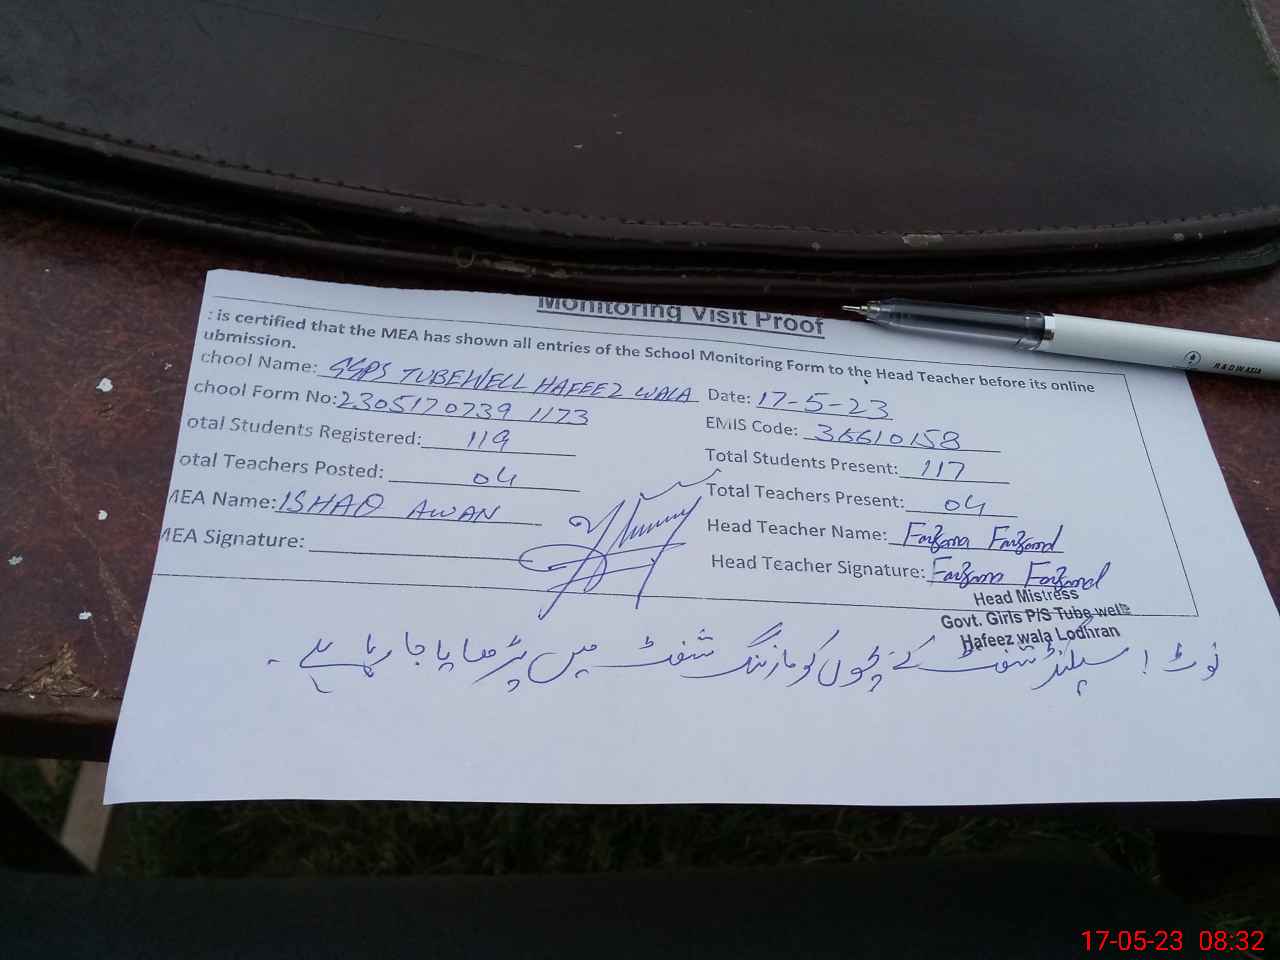 Monitoring Visit Proof
: is certified that the MEA has shown all entries of the School Monitoring Form to the Head Teacher before its online
ubmission.
chool Name: GGPS TUBEWELL HAFEEZ WALA Date: 17-5-23
chool Form No: 2305170739 1173 EMIS Code: 36610158
otal Students Registered: 119 Total Students Present: 117
otal Teachers Posted: 04 Total Teachers Present: 04
MEA Name: ISHAQ AWAN Head Teacher Name: Farzana Farzand
MEA Signature: Head Teacher Signature: Farzana Farzand
Head Mistress
Govt. Girls P/S Tube well
Hafeez wala Lodhran
نوٹ! سیکنڈ شفٹ کے بچوں کو مارننگ شفٹ میں پڑھایا جا رہا ہے۔
RADWASIA
17-05-23 08:32